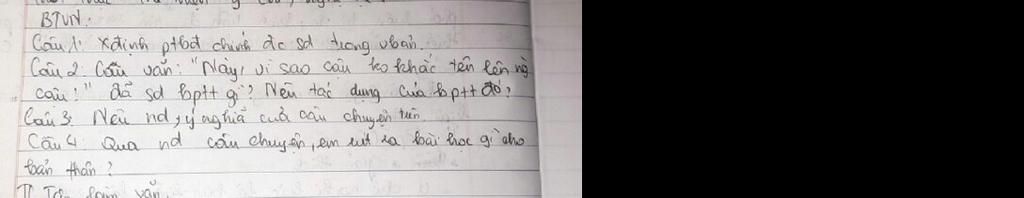 BTVN:
Câu 1: Xđịnh ptbđ chính đc sd trong vbản.
Câu 2: Câu văn: "Này, vì sao cậu ko khắc tên lên ng
cậu!" đã sd bptt gì? Nêu tác dụng của bptt đó?
Câu 3. Nêu nd, ý nghĩa của câu chuyện trên.
Câu 4: Qua nd câu chuyện, em rút ra bài học gì cho
bản thân?
II